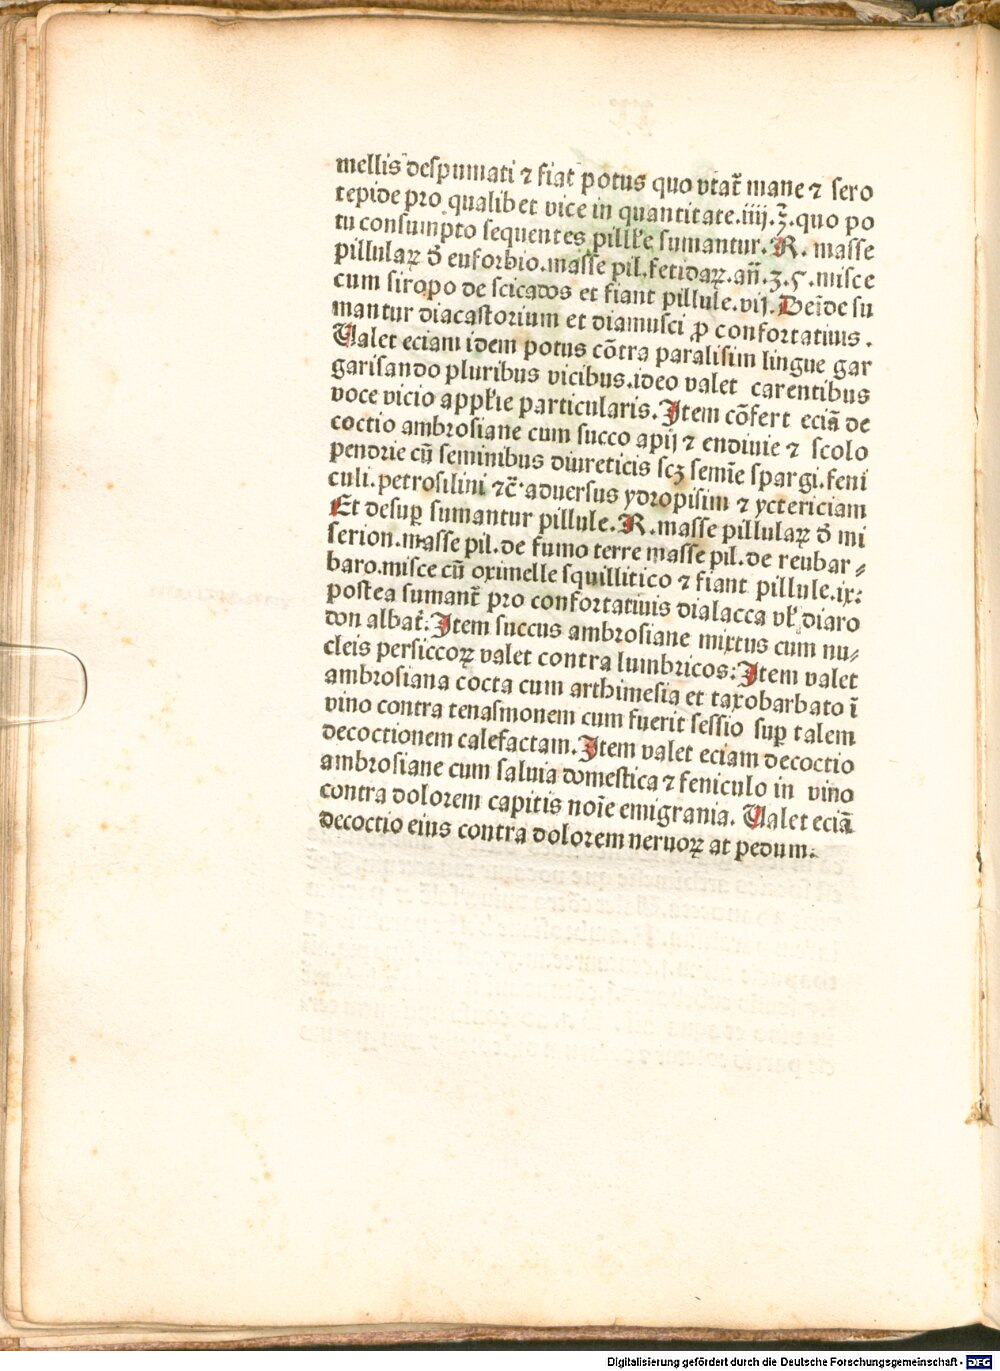 mellis despumati ⁊ fiat potus quo vtat̄ mane ⁊ sero
tepide pro qualibet vice in quantitate.iiij.℥.quo po
tu consumpto sequentes pillłe sumantur.R. masse
pillulaꝝ đ euforbio.masse pil.fetidaꝝ.an̄.ʒ.5.misce
cum siropo de scicados et fiant pillule.vij.Deīde su
mantur diacastorium et diamusci ꝓ confortatiuis.
Ualet eciam idem potus cōtra paralisim lingue gar
garisando pluribus vicibus.ideo valet carentibus
voce vicio appłie particularis.Item cōfert eciā de
coctio ambrosiane cum succo apij ⁊ endiuie ⁊ scolo
pendrie cū seminibus diureticis scꝫ semīe spargi.feni
culi.petrosilini ⁊c̄.aduersus ydropisim ⁊ yctericiam
Et desuꝑ sumantur pillule.R.masse pillulaꝝ đ mi
serion.masse pil.de fumo terre masse pil.de reubar⸗
baro.misce cū oximelle squillitico ⁊ fiant pillule.ix:
postea sumant̄ pro confortatiuis dialacca vł diaro
don albat̄.Item succus ambrosiane mixtus cum nu⸗
cleis persiccoꝝ valet contra lumbricos:Item valet
ambrosiana cocta cum arthimesia et taxobarbato ī
vino contra tenasmonem cum fuerit sessio suꝑ talem
decoctionem calefactam.Item valet eciam decoctio
ambrosiane cum saluia domestica ⁊ feniculo in vino
contra dolorem capitis noīe emigrania. Ualet eciā
decoctio eius contra dolorem neruoꝝ at pedum.
Digitalisierung gefördert durch die Deutsche Forschungsgemeinschaft - DFG